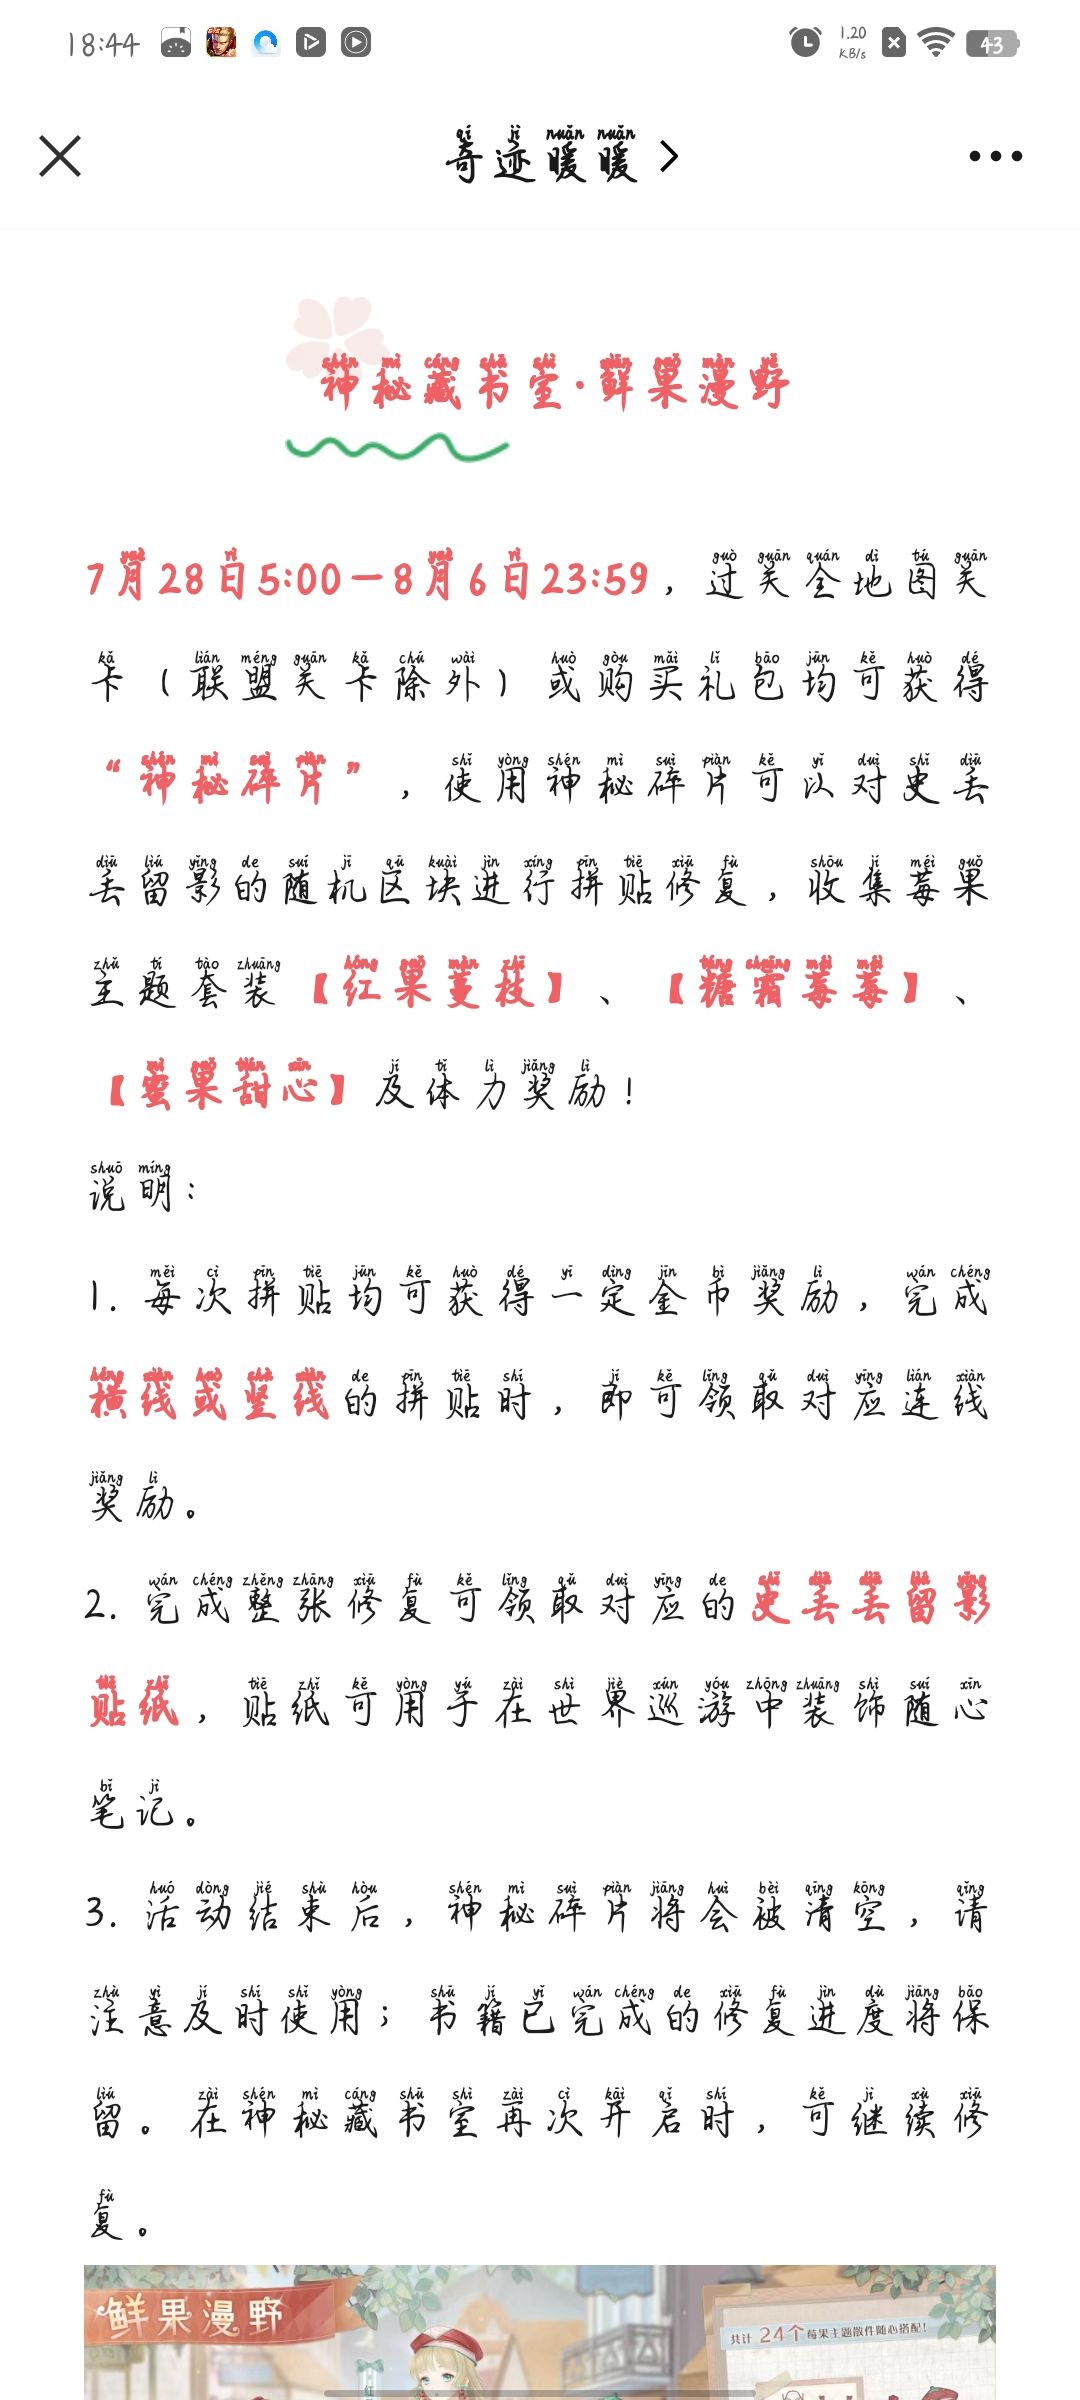 18:44
1.20
KB/s
43
奇迹暖暖
神秘藏书室·鲜果漫野
7月28日5:00—8月6日23:59，过关全地图关
卡（联盟关卡除外）或购买礼包均可获得
“神秘碎片”，使用神秘碎片可以对史丢
丢留影的随机区块进行拼贴修复，收集莓果
主题套装【红果蔓枝】、【糖霜莓莓】、
【蜜果甜心】及体力奖励！
说明：
1. 每次拼贴均可获得一定金币奖励，完成
横线或竖线的拼贴时，即可领取对应连线
奖励。
2. 完成整张修复可领取对应的史丢丢留影
贴纸，贴纸可用于在世界巡游中装饰随心
笔记。
3. 活动结束后，神秘碎片将会被清空，请
注意及时使用；书籍已完成的修复进度将保
留。在神秘藏书室再次开启时，可继续修
复。
鲜果漫野
共计24个莓果主题散件随心搭配！